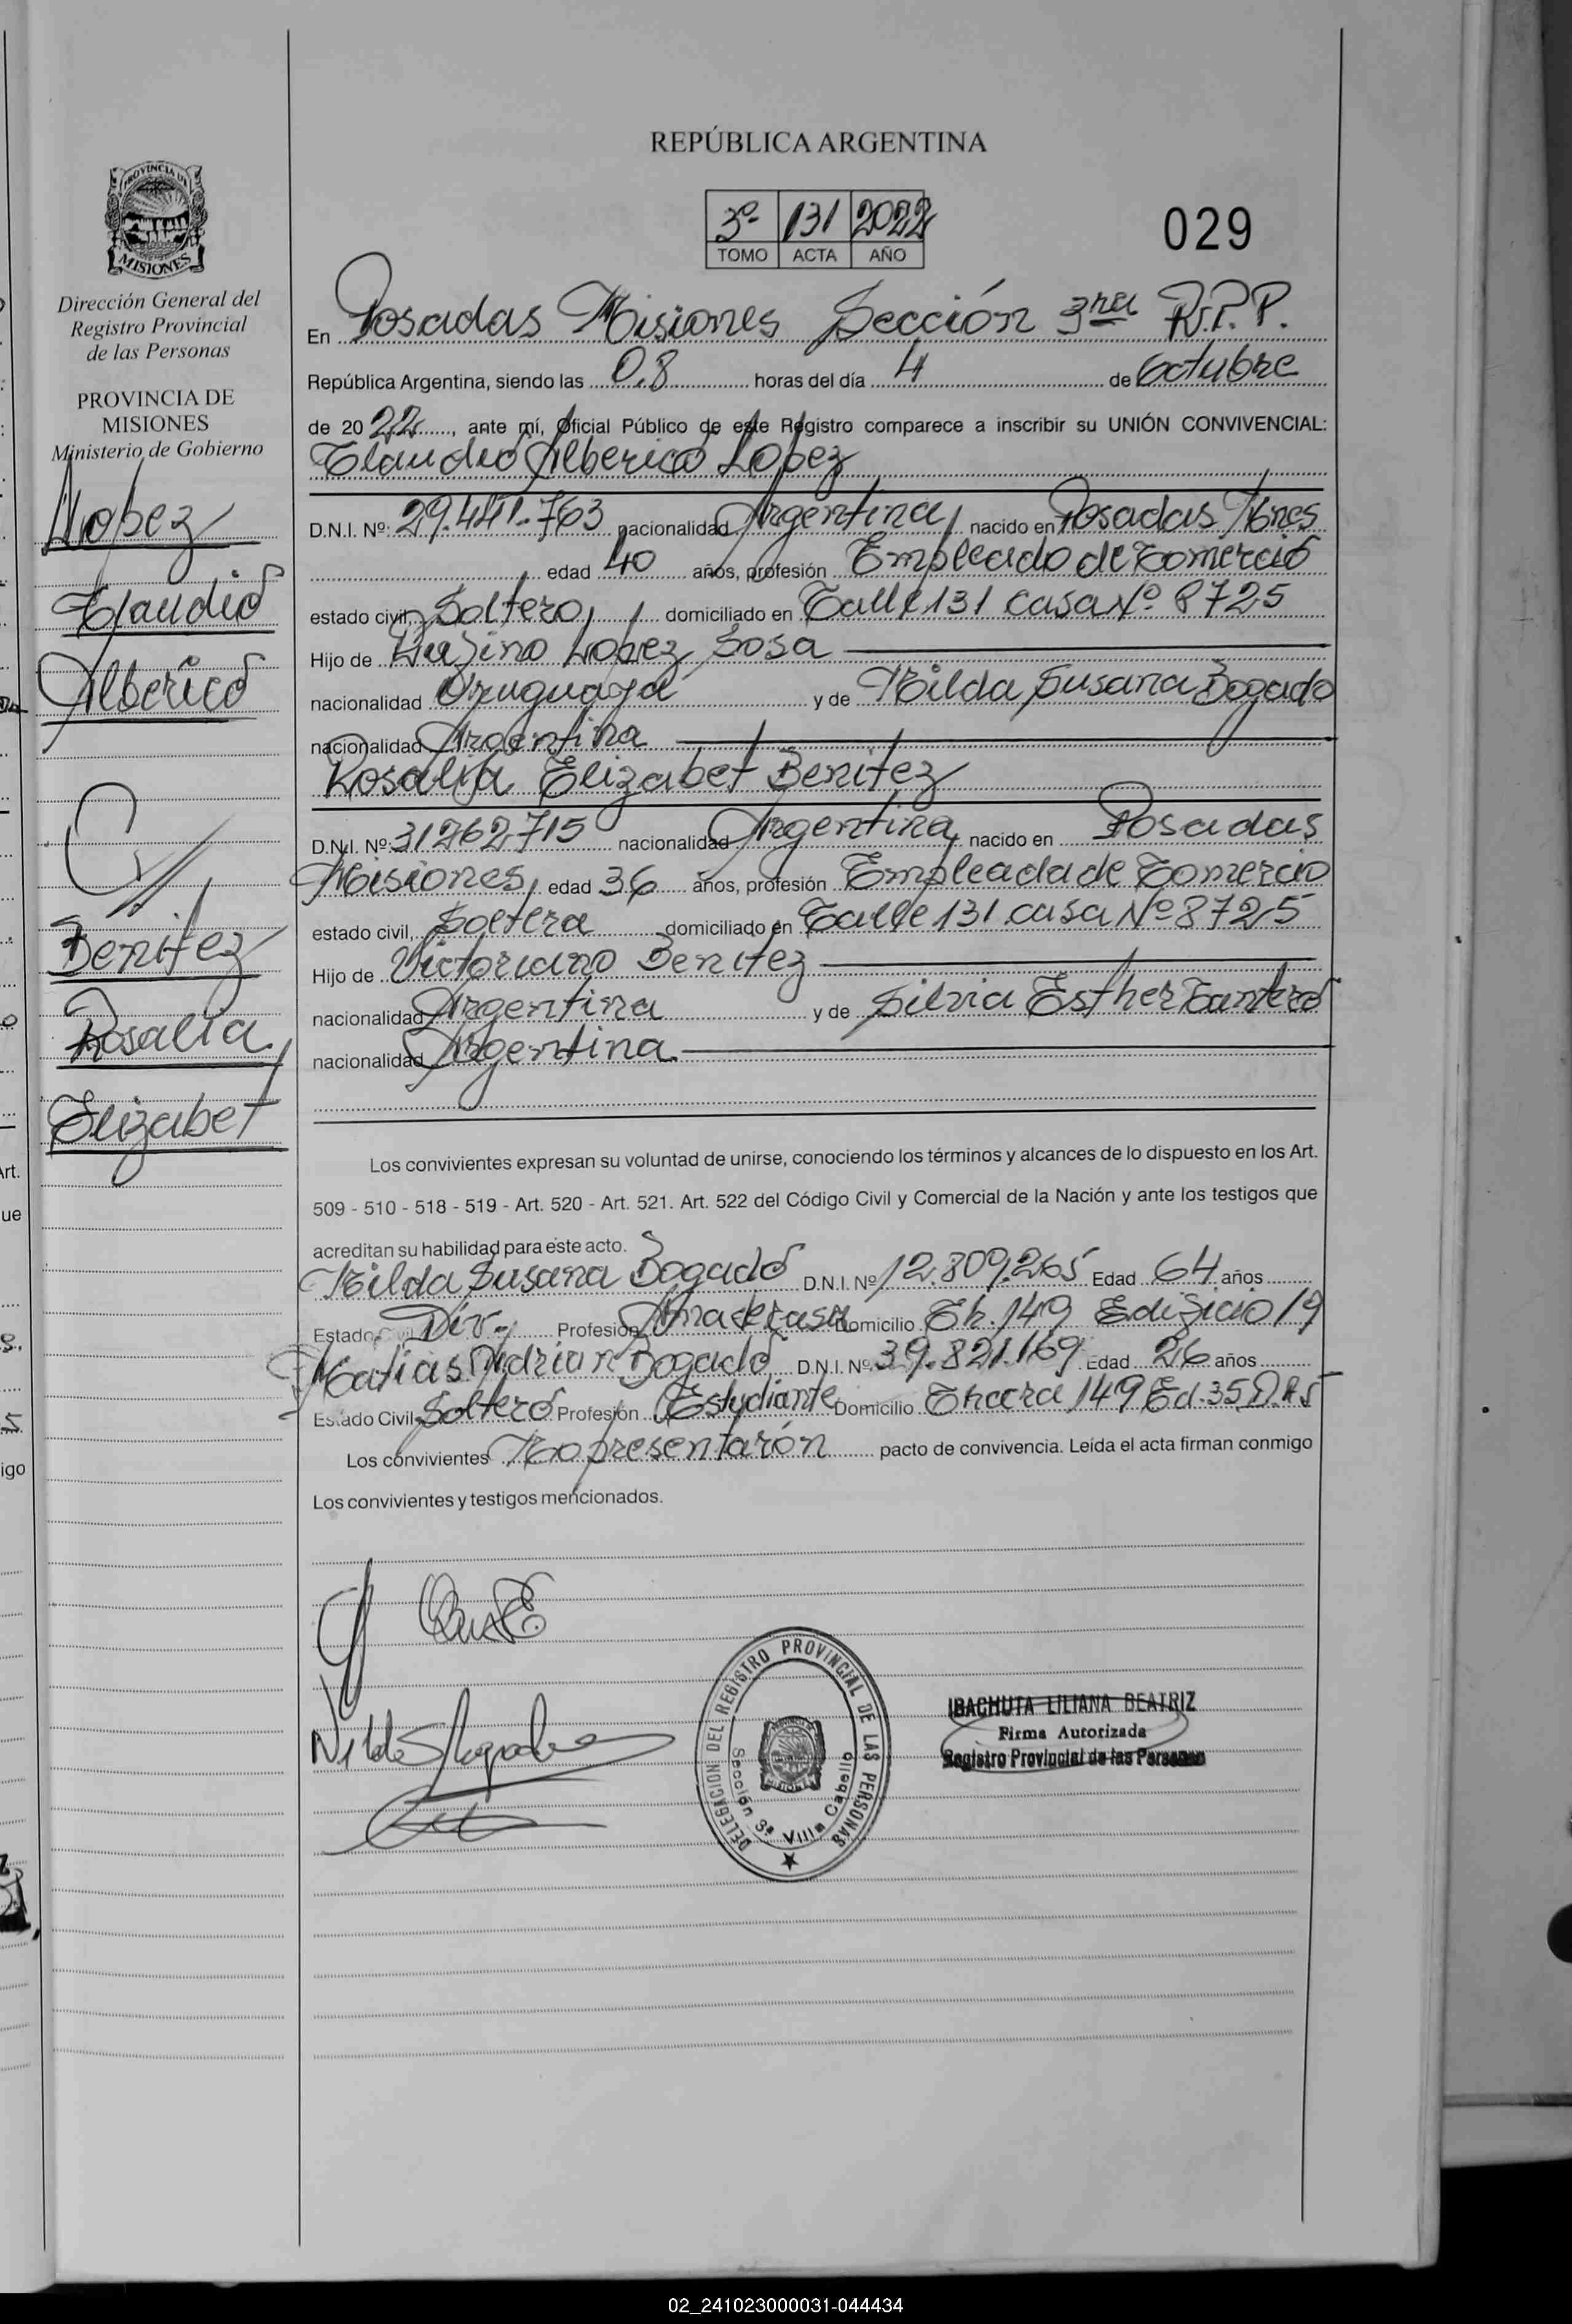 REPÚBLICA ARGENTINA
3º 131 2022
TOMO ACTA AÑO
029
PROVINCIA DE
MISIONES
Dirección General del
Registro Provincial
de las Personas
PROVINCIA DE
MISIONES
Ministerio de Gobierno
Lopez
Claudio
Alberico
Benitez
Rosalia
Elizabet
En Posadas Misiones Sección 3ra R.P.P.
República Argentina, siendo las 08 horas del día 4 de Octubre
de 2022, ante mí, Oficial Público de este Registro comparece a inscribir su UNIÓN CONVIVENCIAL:
Claudio Alberico Lopez
D.N.I. Nº: 29.441.763 nacionalidad Argentina, nacido en Posadas Mnes
edad 40 años, profesión Empleado de Comercio
estado civil, Soltero, domiciliado en Calle 131 casa Nº 8725
Hijo de Lopez Sosa
nacionalidad Uruguaya y de Nilda Susana Bogado
nacionalidad Argentina
Rosalia Elizabet Benitez
D.N.I. Nº: 31262715 nacionalidad Argentina, nacido en Posadas
Misiones, edad 36 años, profesión Empleada de Comercio
estado civil, Soltera domiciliado en Calle 131 casa Nº 8725
Hijo de Victoriano Benitez
nacionalidad Argentina y de Silvia Esther Cantero
nacionalidad Argentina
Los convivientes expresan su voluntad de unirse, conociendo los términos y alcances de lo dispuesto en los Art.
509 - 510 - 518 - 519 - Art. 520 - Art. 521. Art. 522 del Código Civil y Comercial de la Nación y ante los testigos que
acreditan su habilidad para este acto.
Nilda Susana Bogado D.N.I. Nº 12.809.265 Edad 64 años
Estado Civil Div. Profesión Ama de casa Domicilio Ch. 149 Edificio 19
Matias Adrian Bogado D.N.I. Nº 39.821.169 Edad 26 años
Estado Civil Soltero Profesión Estudiante Domicilio Chacra 149 Ed. 35
Los convivientes No presentarón pacto de convivencia. Leída el acta firman conmigo
Los convivientes y testigos mencionados.
DELEGACION DEL REGISTRO PROVINCIAL DE LAS PERSONAS
Sección 3ª Villa Cabello
IBACHUTA LILIANA BEATRIZ
Firma Autorizada
Registro Provincial de las Personas
02_241023000031-044434